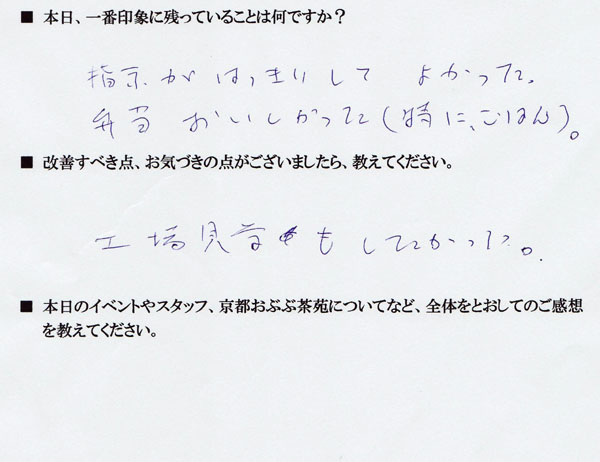 ■ 本日、一番印象に残っていることは何ですか?
指示がはっきりして よかった。
弁当 おいしかった(特に、ごはん)。
■ 改善すべき点、お気づきの点がございましたら、教えてください。
工場見学もしてたかった。
■ 本日のイベントやスタッフ、京都おぶぶ茶苑についてなど、全体をとおしてのご感想
を教えてください。